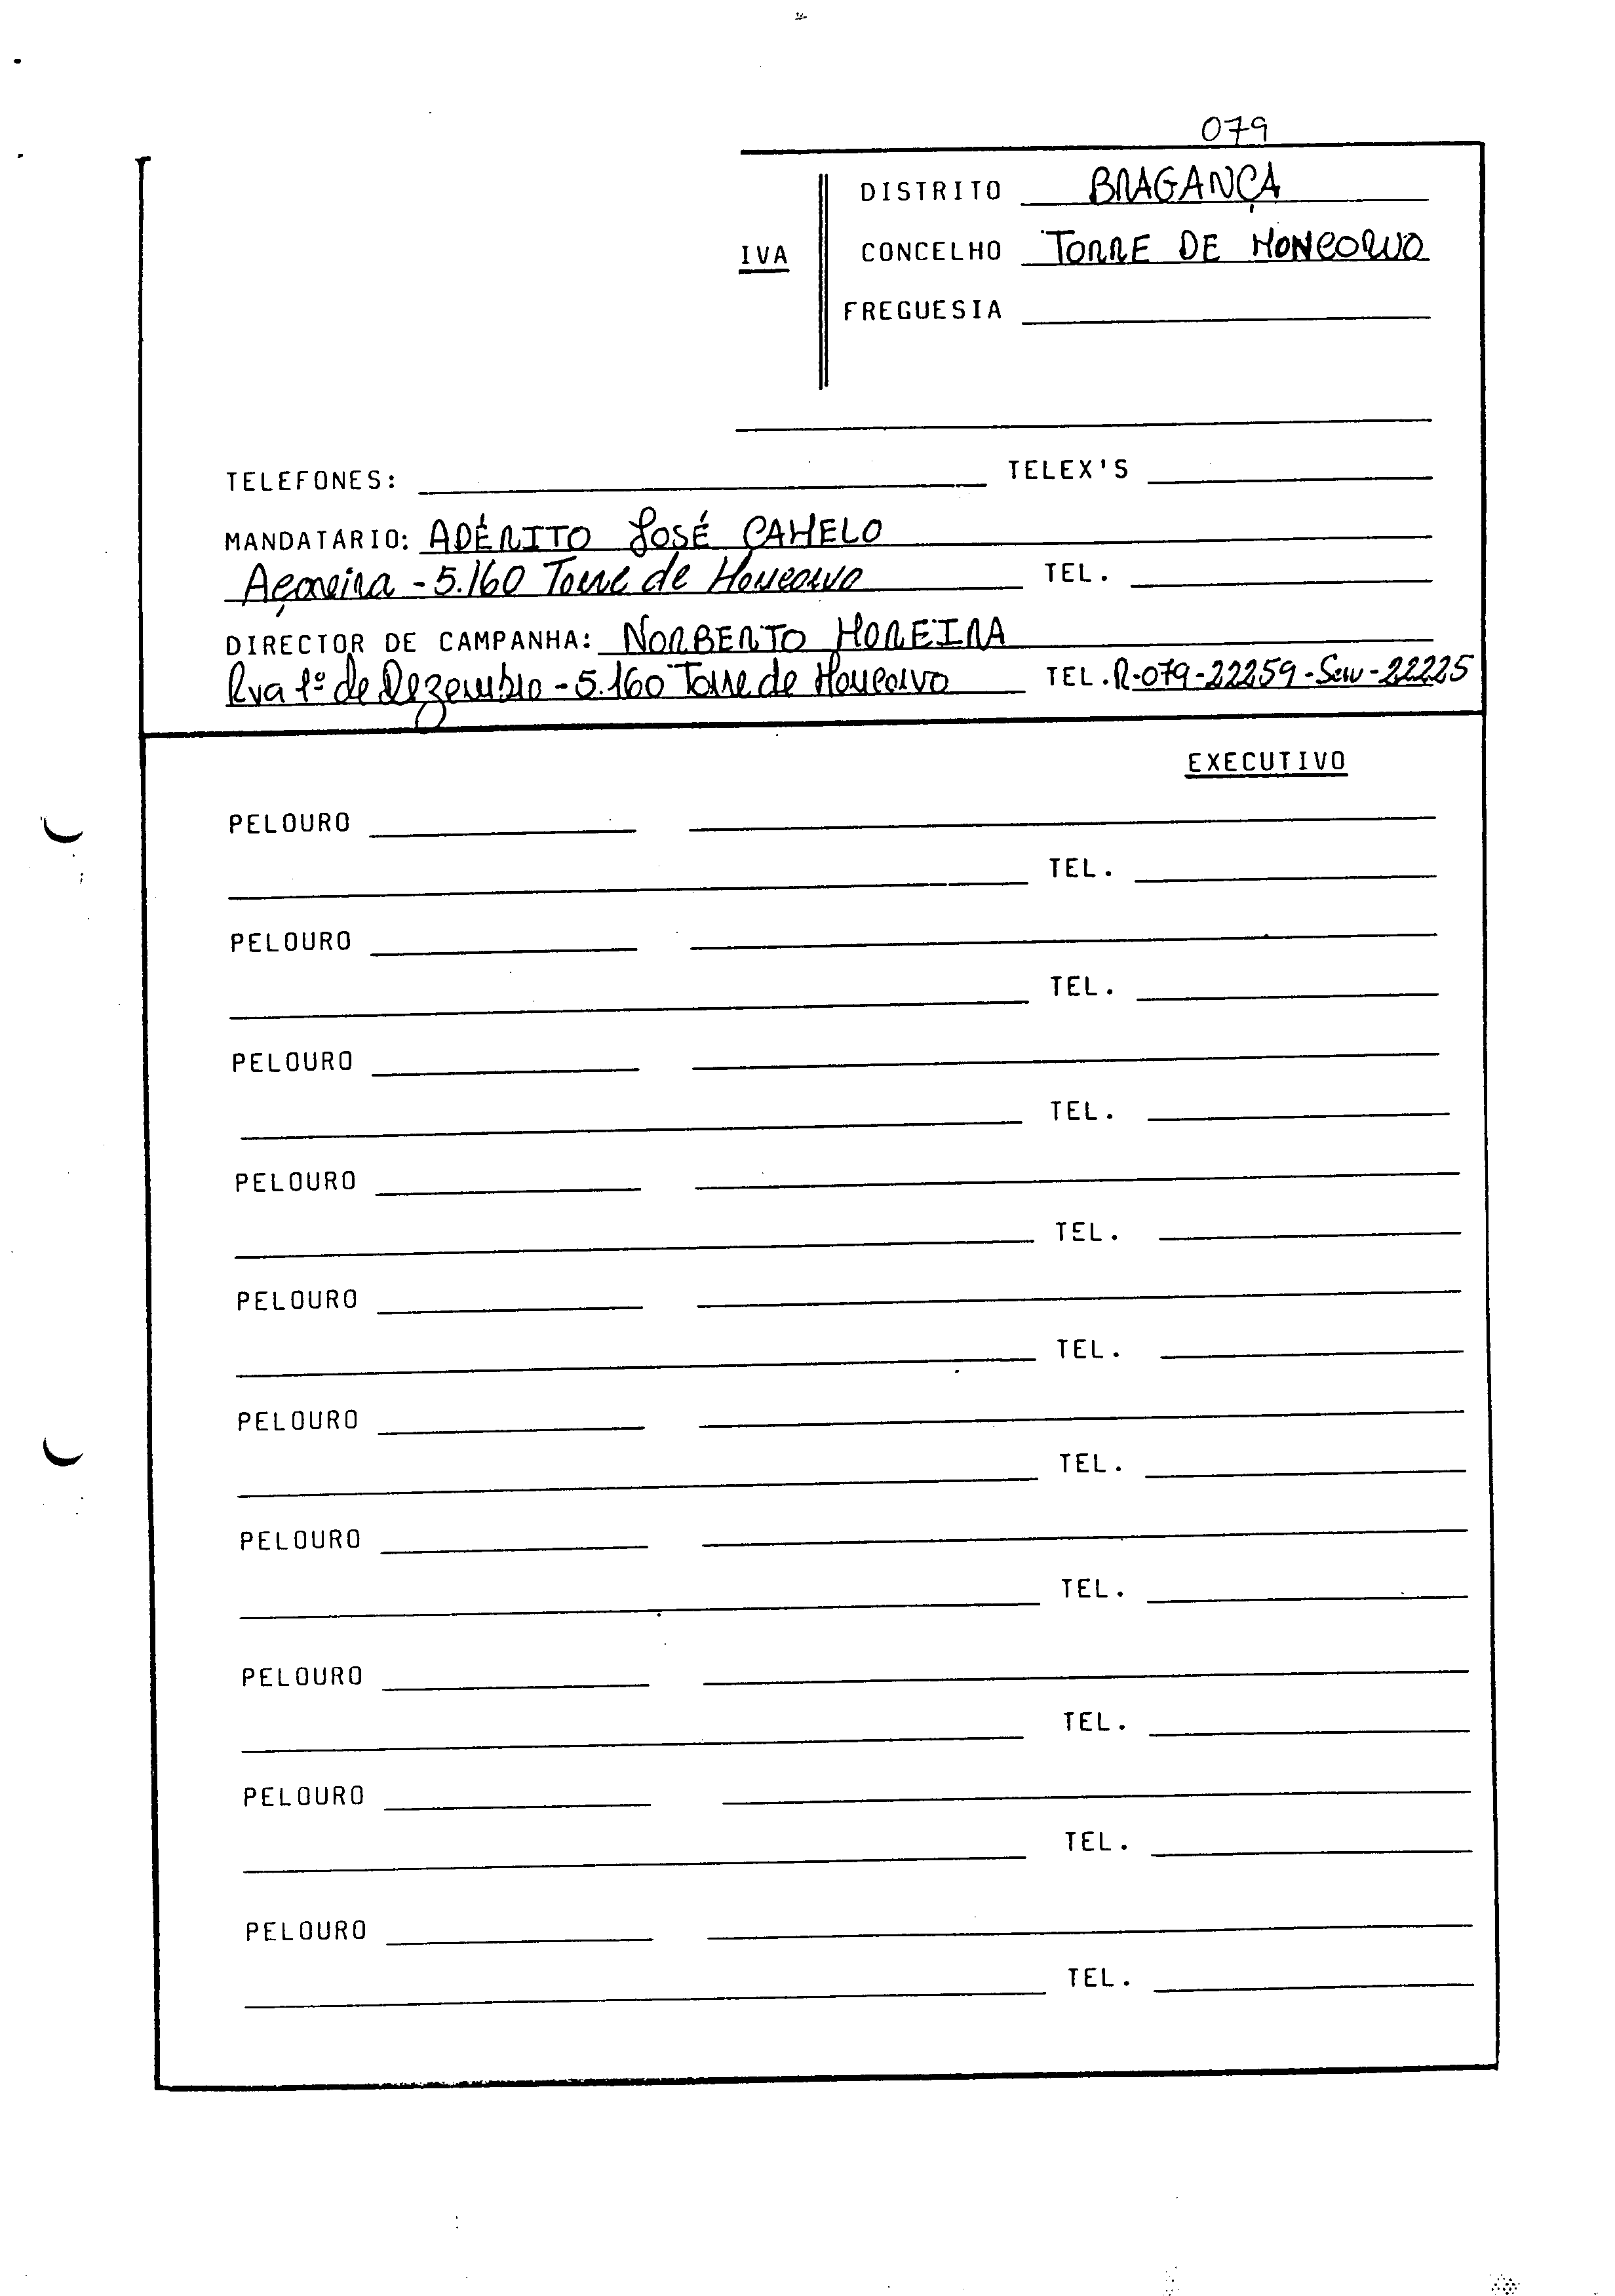 079
DISTRITO BRAGANÇA
IVA CONCELHO TORRE DE MONCORVO
FREGUESIA
TELEFONES: TELEX'S
MANDATARIO: ADÉRITO JOSÉ CAMELO
Açoreira - 5.160 Torre de Moncorvo TEL.
DIRECTOR DE CAMPANHA: NORBERTO MOREIRA
Rua 1º de Dezembro - 5.160 Torre de Moncorvo TEL. R-079-22259-Serv-22225
EXECUTIVO
PELOURO
TEL.
PELOURO
TEL.
PELOURO
TEL.
PELOURO
TEL.
PELOURO
TEL.
PELOURO
TEL.
PELOURO
TEL.
PELOURO
TEL.
PELOURO
TEL.
PELOURO
TEL.